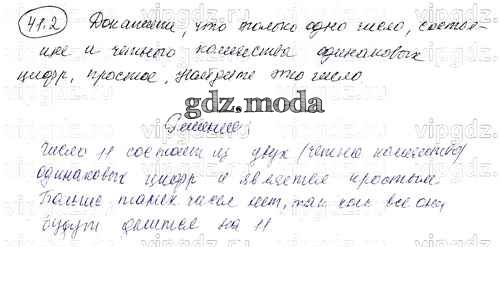 41.2 Докажите, что только одно число, состоя-
щее из четного количества одинаковых
цифр, простое. Найдите это число
gdz.moda
Решение:
Число 11 состоит из двух (четное количество)
одинаковых цифр и является простым.
Больше таких чисел нет, так как все они
будут делится на 11